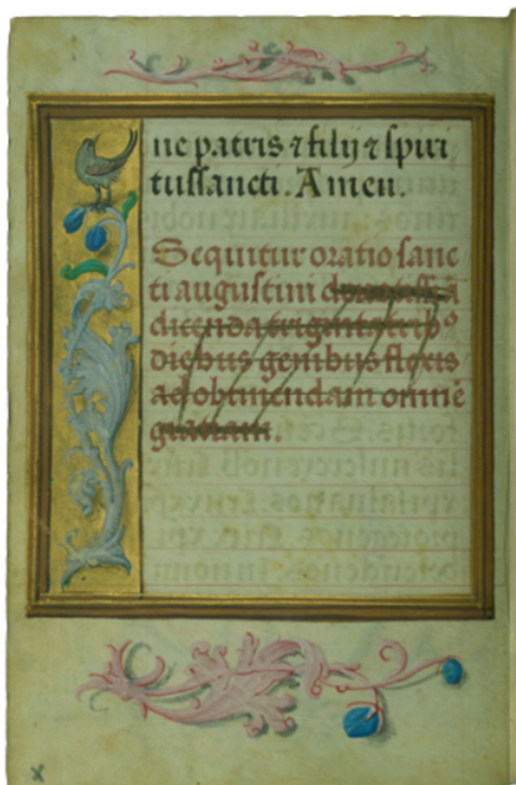 ne patris ⁊ filij ⁊ spiri
tussancti. Amen.
Sequitur oratio sanc
ti augustini
dicenda triginta trib⁹
diebus genibus flexis
ad obtinendam omnē
gratiam.